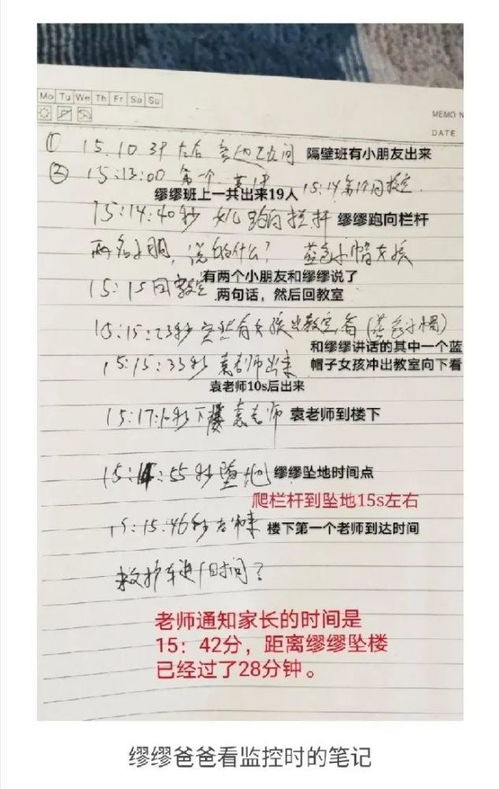 Mo Tu We Th Fr Sa Su
MEMO N
DATE
① 15.10.39 左右 隔壁班有小朋友出来
② 15:13:00 第一个
缪缪班上一共出来19人 15:14
15:14:40秒 女儿跑向栏杆 缪缪跑向栏杆
两名小朋,说的什么? 蓝色小帽女孩
15:15回教室 有两个小朋友和缪缪说了
两句话，然后回教室
15:15:23秒 突然有女孩出教室看(蓝色小帽)
和缪缪讲话的其中一个蓝
15:15:33秒 袁老师出来 帽子女孩冲出教室向下看
袁老师10s后出来
15:17:10秒下楼 袁老师 袁老师到楼下
15:14:55秒坠地 缪缪坠地时间点
爬栏杆到坠地15s左右
15:15:46秒老师来 楼下第一个老师到达时间
救护车进门时间?
老师通知家长的时间是
15：42分，距离缪缪坠楼
已经过了28分钟。
缪缪爸爸看监控时的笔记